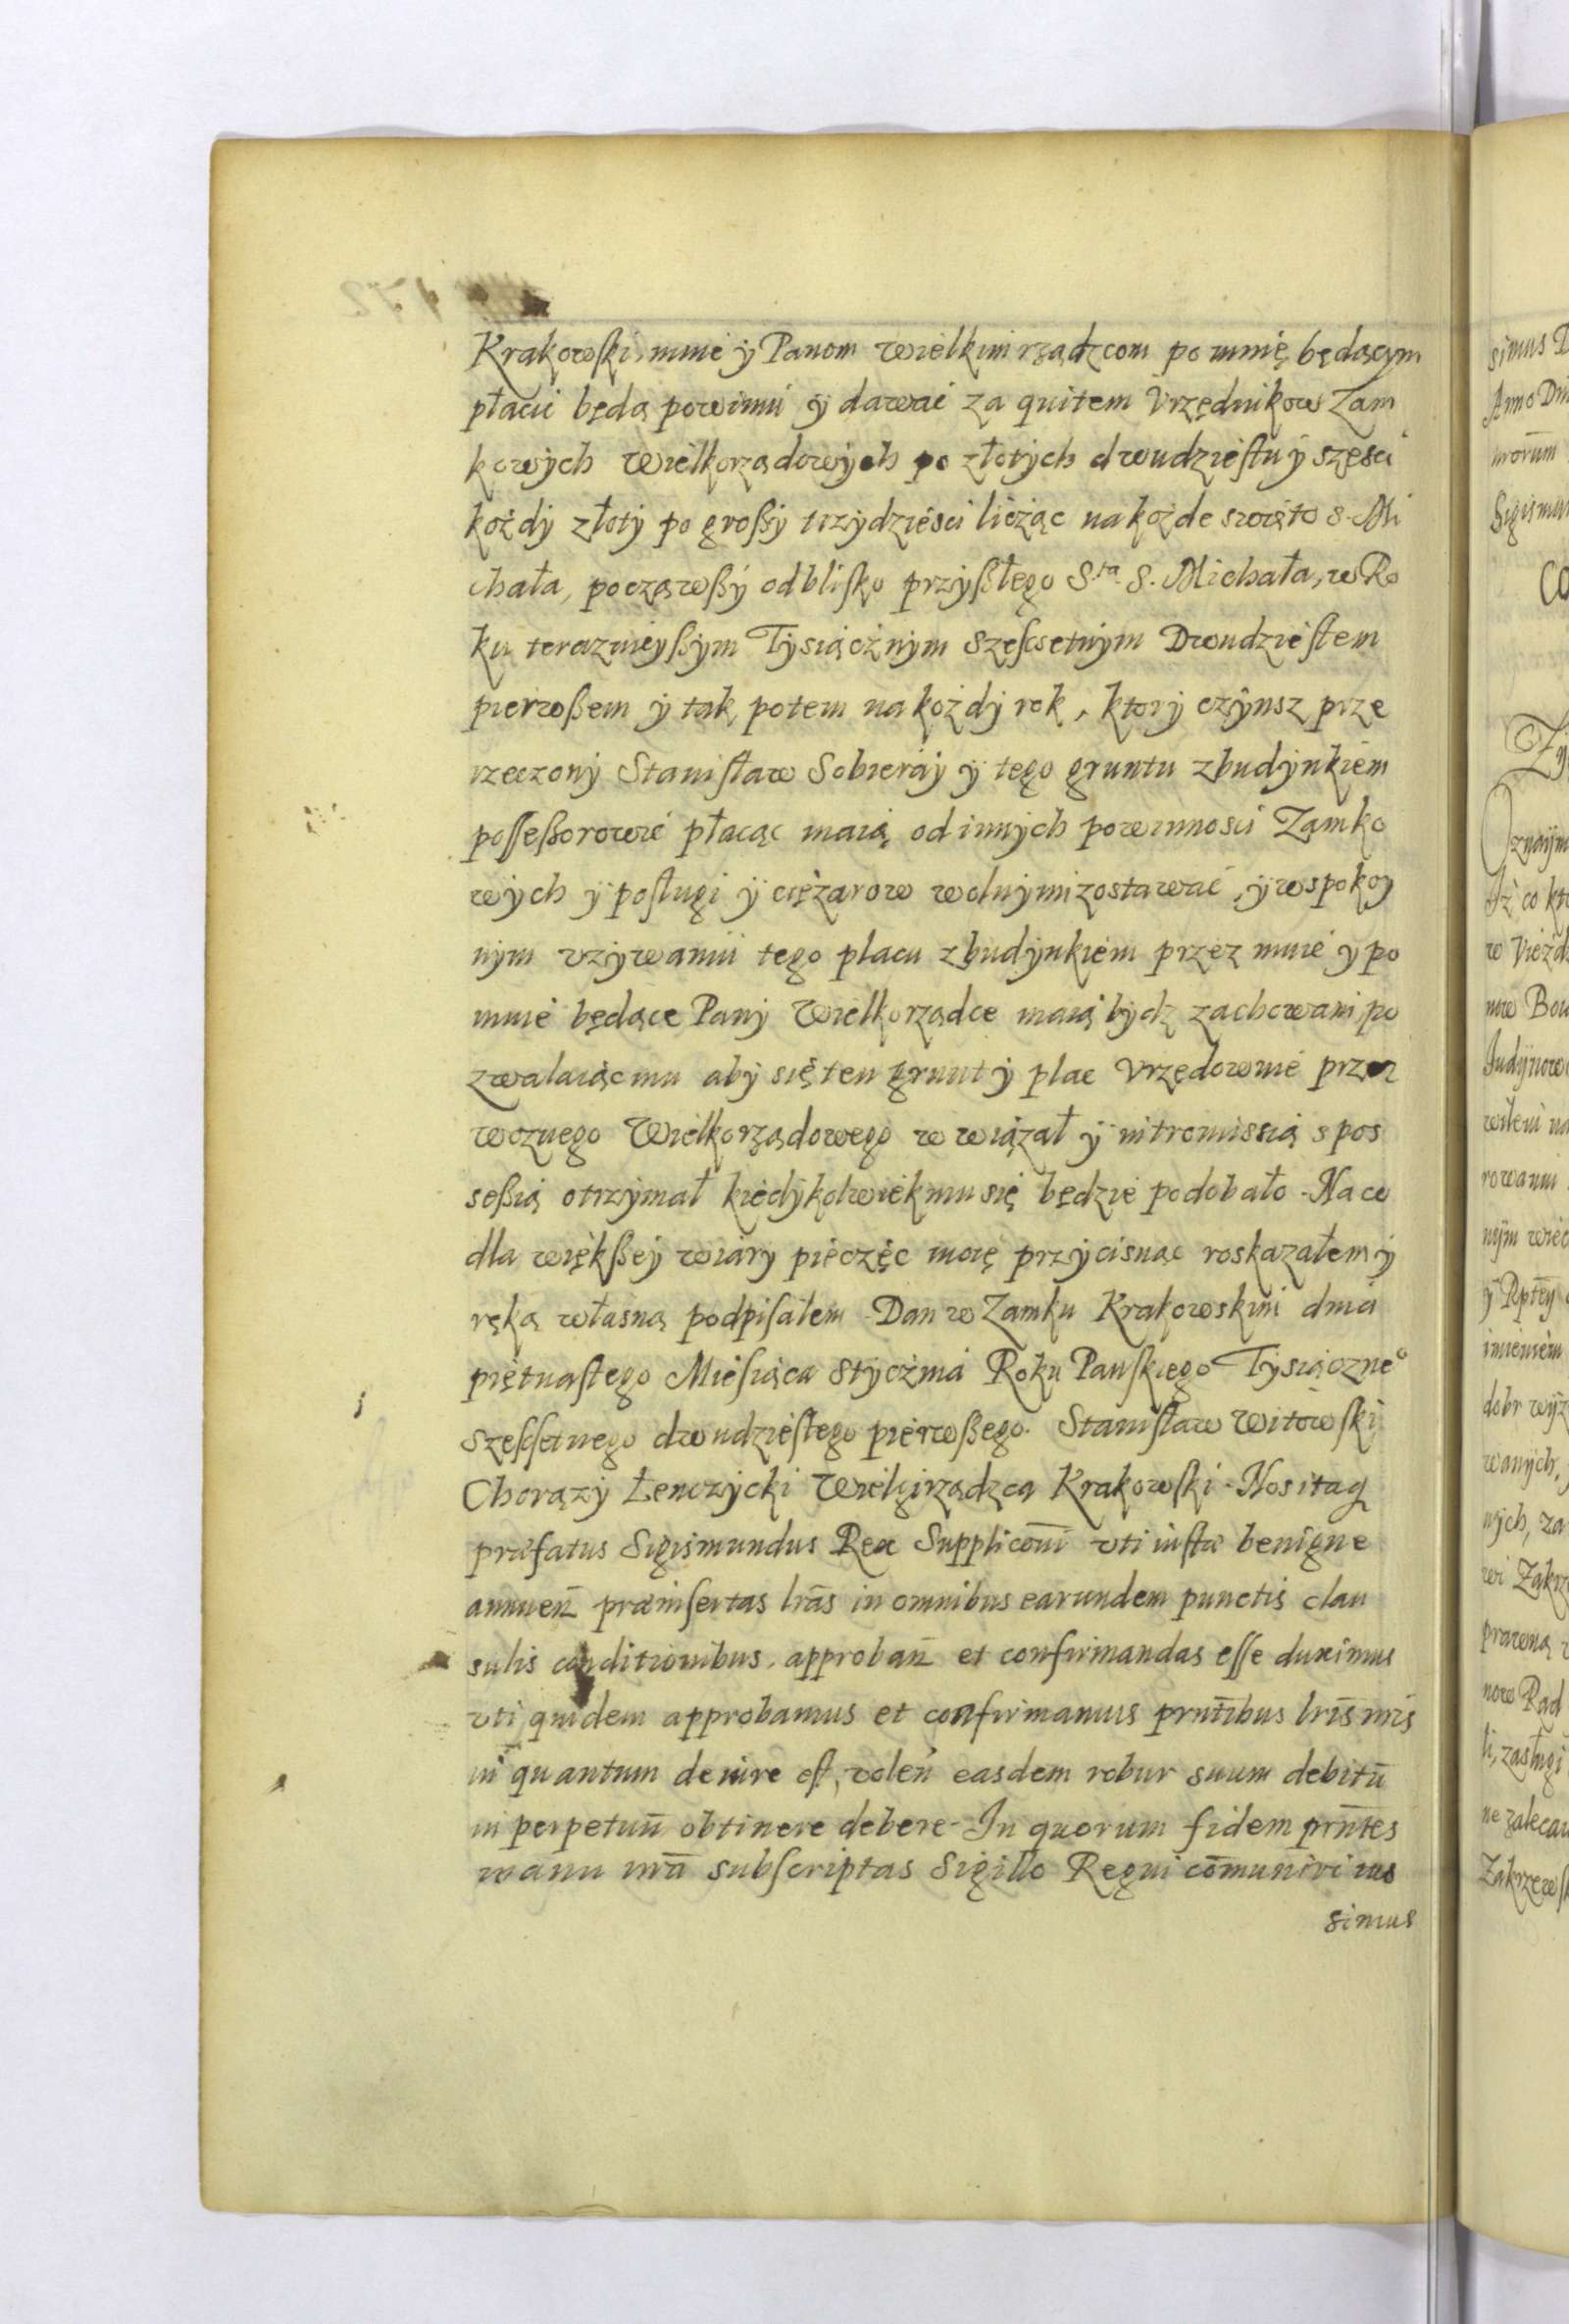 Krakowski, mnie ÿ Panom wielkim rządzcom po mnię będącym
płacić będą powinni ÿ dawać za quitem Vrzędnikow Zam
kowÿch Wielkorządowÿch po złotÿch dwudziestu ÿ szęsci
kożdÿ złotÿ po groszÿ trzÿdzięsci licżąc na kożde swięto S. Mi
chała, począwszÿ od blisko przÿszłego S.ta S. Michała, w Ro
ku teraznieÿszÿm Tÿsiącżnÿm Szęscsetnÿm Dwudziestem
pierwszem ÿ tak potem na kożdÿ rok, ktorÿ czÿnsz prze
rzeczonÿ Stanisław Sobieraÿ ÿ tego gruntu z budÿnkiem
possessorowie płacąc maią od innÿch powinnosci Zamko
wÿch ÿ posługi ÿ ciężarow wolnÿmi zostawać, ÿ w spokoÿ
nÿm vżÿwaniu tego placu z budÿnkiem przez mnie ÿ po
mnie będące Panÿ Wielkorządce maią bÿdz zachowani, po
zwalaiąc mu abÿ się ten grunt ÿ plac Vrzędownie przez
woznego Wielkorządowego w wiązał ÿ intromissią s pos
sessią otrzÿmał kiedÿkolwiek mu się będzie podobało. Na co
dla większeÿ wiarÿ pieczęc moię przÿcisnąc roskazałem ÿ
ręką własną podpisałem. Dan w Zamku Krakowskim dnia
piętnastego Miesiąca Stÿcżnia Roku Panskiego Tÿsiączneº
Szescsetnego dwudziestego pierwszego. Stanisław Witowski
Chorązÿ Łenczÿcki Wielgirządzca Krakowski. Nos itaq
præfatus Sigismundus Rex Supplicōni vti iustæ benigne
annuen̄ præinsertas lr̄as in omnibus earundem punctis clau
sulis conditionibus, approban̄ et confirmandas esse duximus
vti quidem approbamus et confirmamus prn̄tibus lr̄is nr̄is
in quantum de iure est, volen̄ easdem robur suum debitū
in perpetuū obtinere debere. In quorum fidem prn̄tes
manu nr̄a subscriptas Sigillo Regni cōmuniri ius
simus